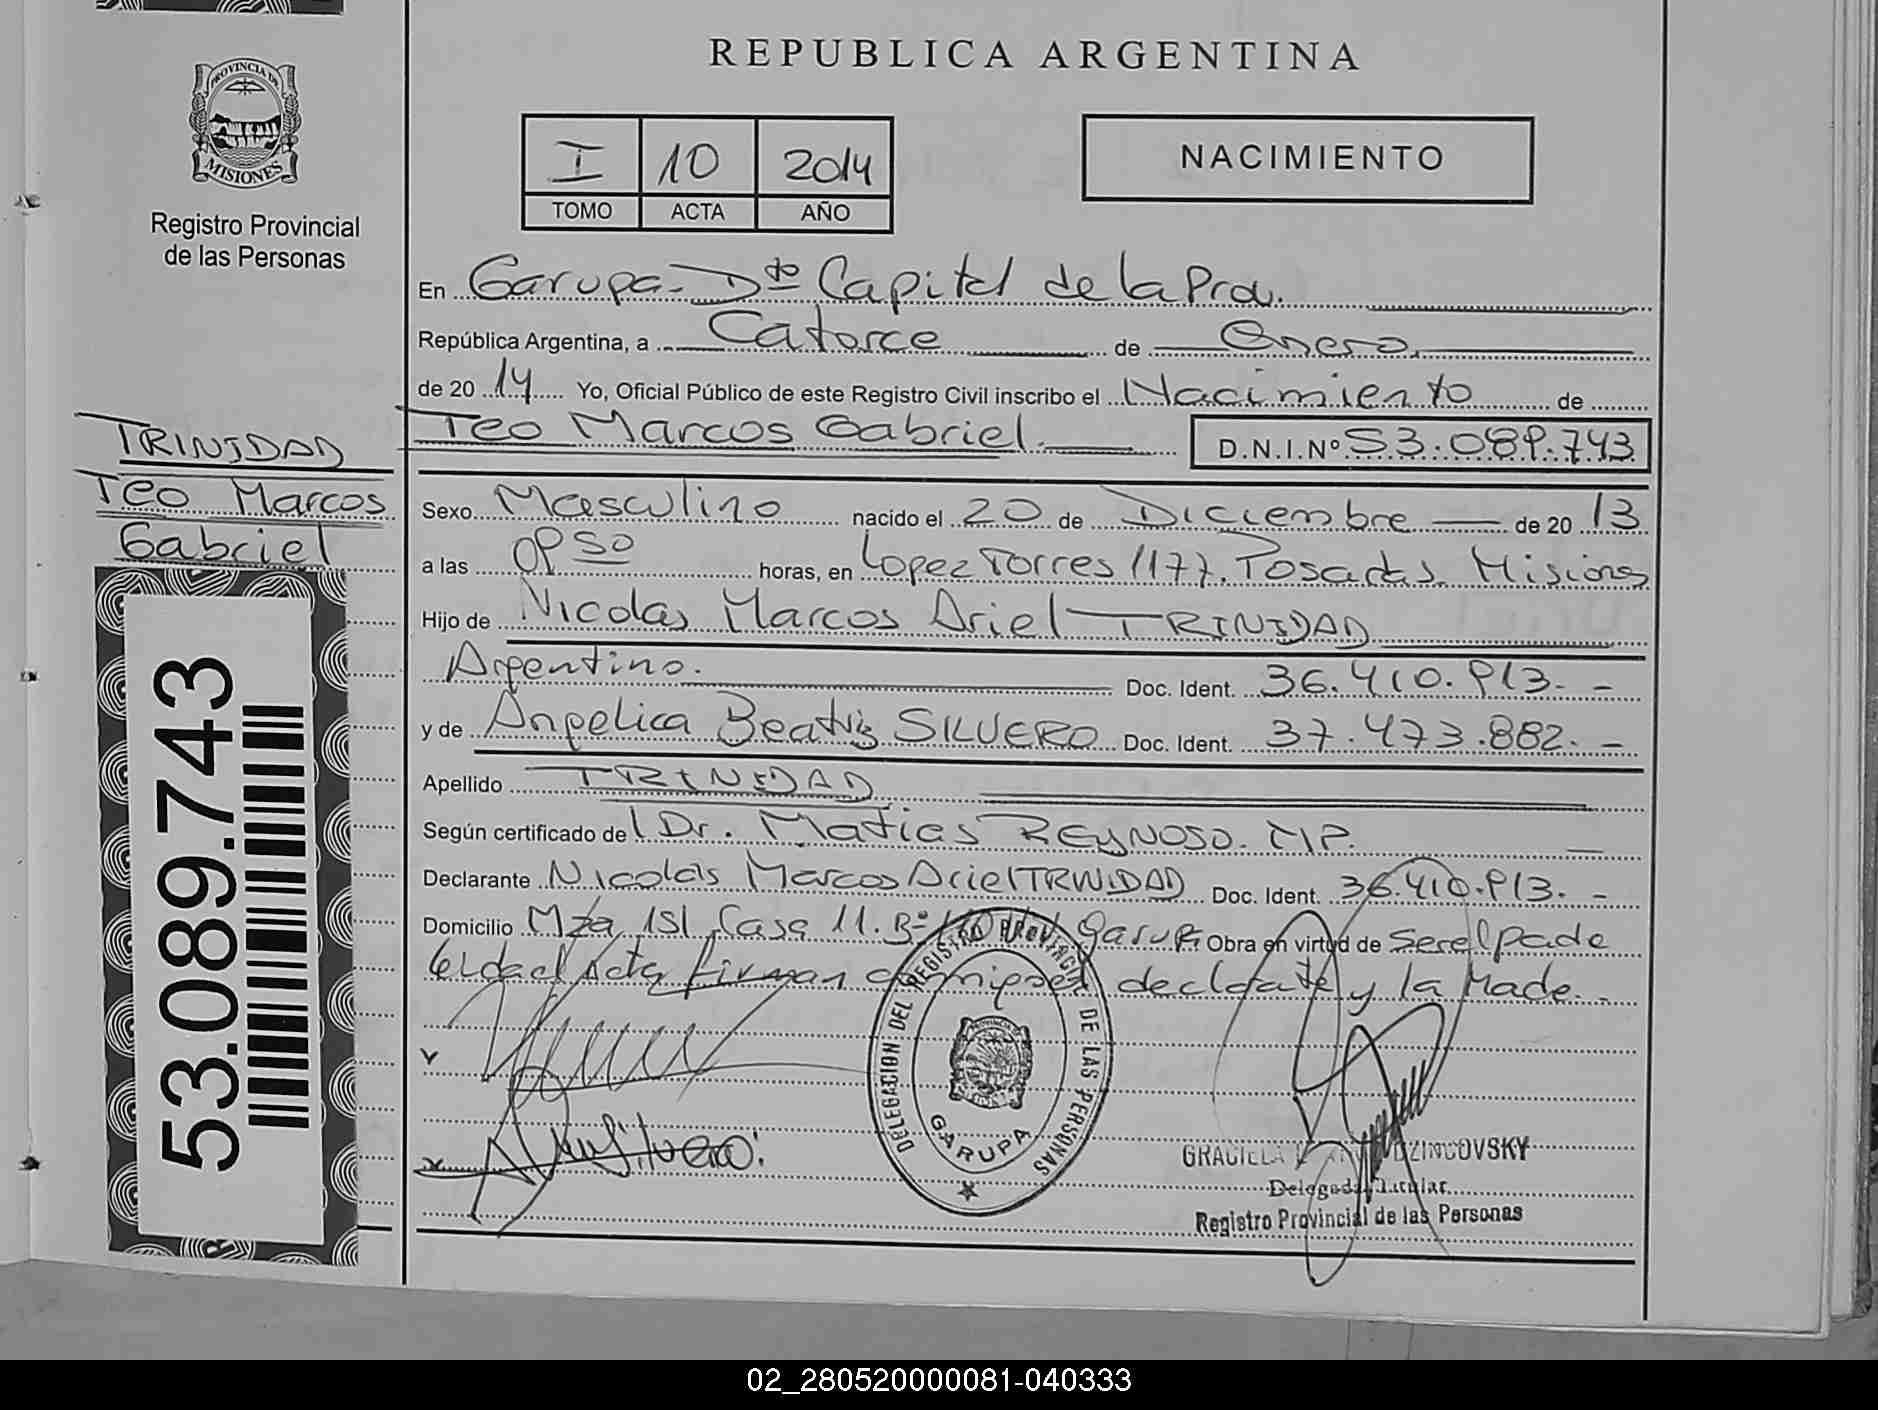 REPUBLICA ARGENTINA
PROVINCIA DE
MISIONES
Registro Provincial
de las Personas
I 10 2014
TOMO ACTA AÑO
NACIMIENTO
En Garupa - Dto Capital de la Prov.
República Argentina, a Catorce de Enero
de 20 14 Yo, Oficial Público de este Registro Civil inscribo el Nacimiento de
Teo Marcos Gabriel. D.N.I.Nº 53.089.743
TRINIDAD
Teo Marcos
Gabriel
53.089.743
Sexo Masculino nacido el 20 de Diciembre de 20 13
a las 09 50 horas, en Lopez Torres 1177. Posadas. Misiones
Hijo de Nicolas Marcos Ariel TRINIDAD
Argentino. Doc. Ident. 36.410.913. -
y de Angelica Beatriz SILVERO Doc. Ident. 37.473.882. -
Apellido TRINIDAD
Según certificado del Dr. Matias REYNOSO. MP.
Declarante Nicolás Marcos Ariel TRINIDAD Doc. Ident. 36.410.913. -
Domicilio Mza 151 Casa 11. Bº Garupa Obra en virtud de ser el padre
Leida el Acta firman declarante y la Madre.
DELEGACION DEL REGISTRO PROVINCIAL DE LAS PERSONAS
GARUPA
GRACIELA
Delegada Titular
Registro Provincial de las Personas
02_280520000081-040333